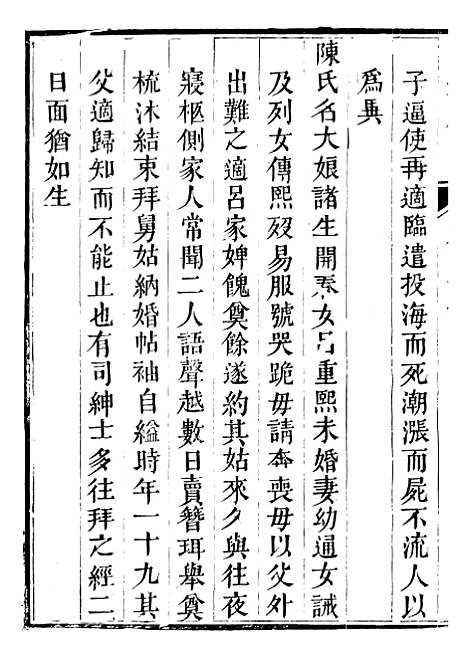 子逼使再適臨遣投海而死潮漲而屍不流人以
爲異
陳氏名大娘諸生開泰女呂重熙未婚妻幼通女誡
及列女傳熙殁易服號哭跪毋請奔喪毋以父外
出難之適呂家婢餽奠餘遂約其姑來夕與往夜
寢柩側家人常聞二人語聲越數日賣簪珥舉奠
梳沐結束拜舅姑納婚帖袖自縊時年一十九其
父適歸知而不能止也有司紳士多往拜之經二
日面猶如生